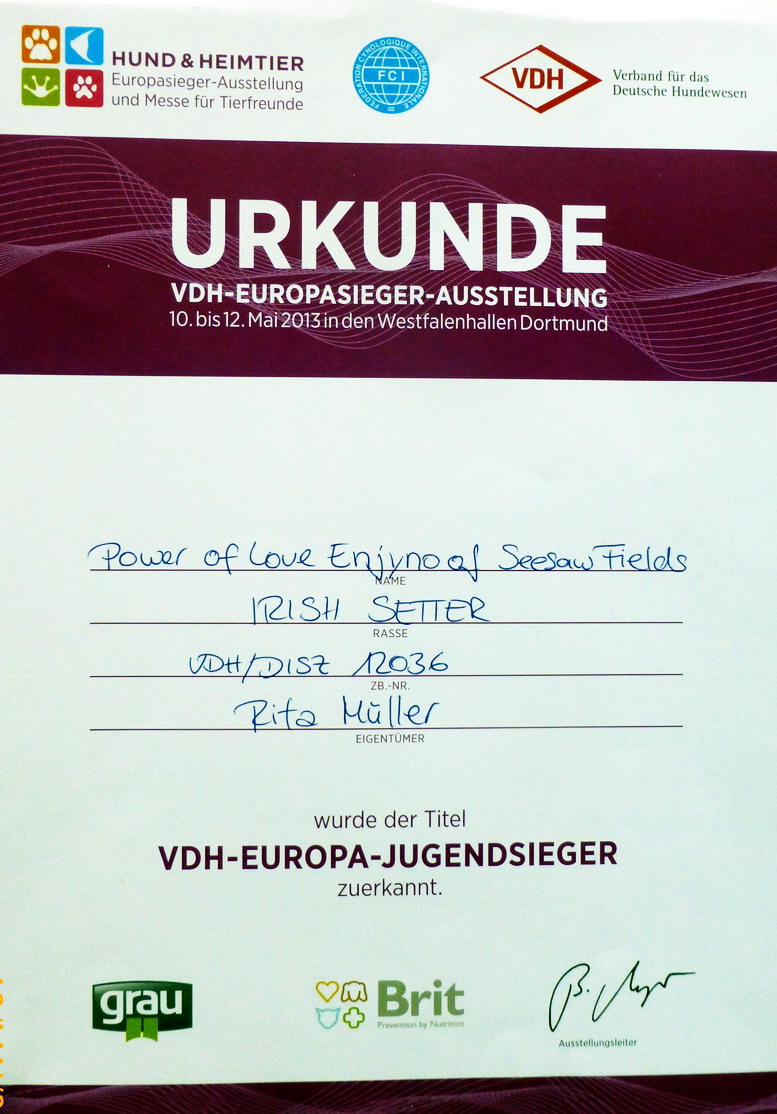 HUND & HEIMTIER
Europasieger-Ausstellung
und Messe für Tierfreunde
FEDERATION CYNOLOGIQUE INTERNATIONALE
FCI
VDH
Verband für das
Deutsche Hundewesen
URKUNDE
VDH-EUROPASIEGER-AUSSTELLUNG
10. bis 12. Mai 2013 in den Westfalenhallen Dortmund
Power of Love Enjyno of Seesaw Fields
NAME
IRISH SETTER
RASSE
VDH/DISZ 12036
ZB.-NR.
Rita Müller
EIGENTÜMER
wurde der Titel
VDH-EUROPA-JUGENDSIEGER
zuerkannt.
grau
Brit
Prevention by Nutrition
Ausstellungsleiter